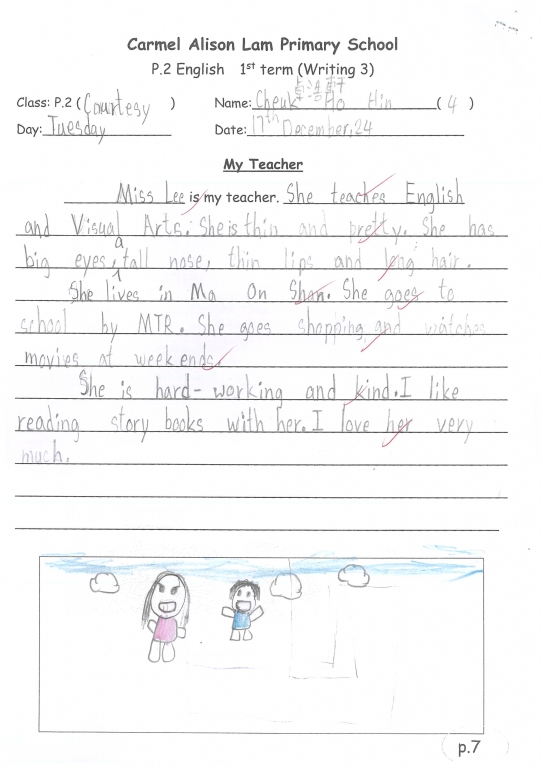 Carmel Alison Lam Primary School
P.2 English 1st term (Writing 3)
卓浩軒
Class: P.2 ( Courtesy ) Name: Cheuk Ho Hin ( 4 )
Day: Tuesday Date: 17th December,24
My Teacher
Miss Lee is my teacher. She teaches English
and Visual Arts. She is thin and pretty. She has
big eyes, a tall nose, thin lips and long hair.
She lives in Ma On Shan. She goes to
school by MTR. She goes shopping and watches
movies at weekends.
She is hard-working and kind. I like
reading story books with her. I love her very
much.
p.7